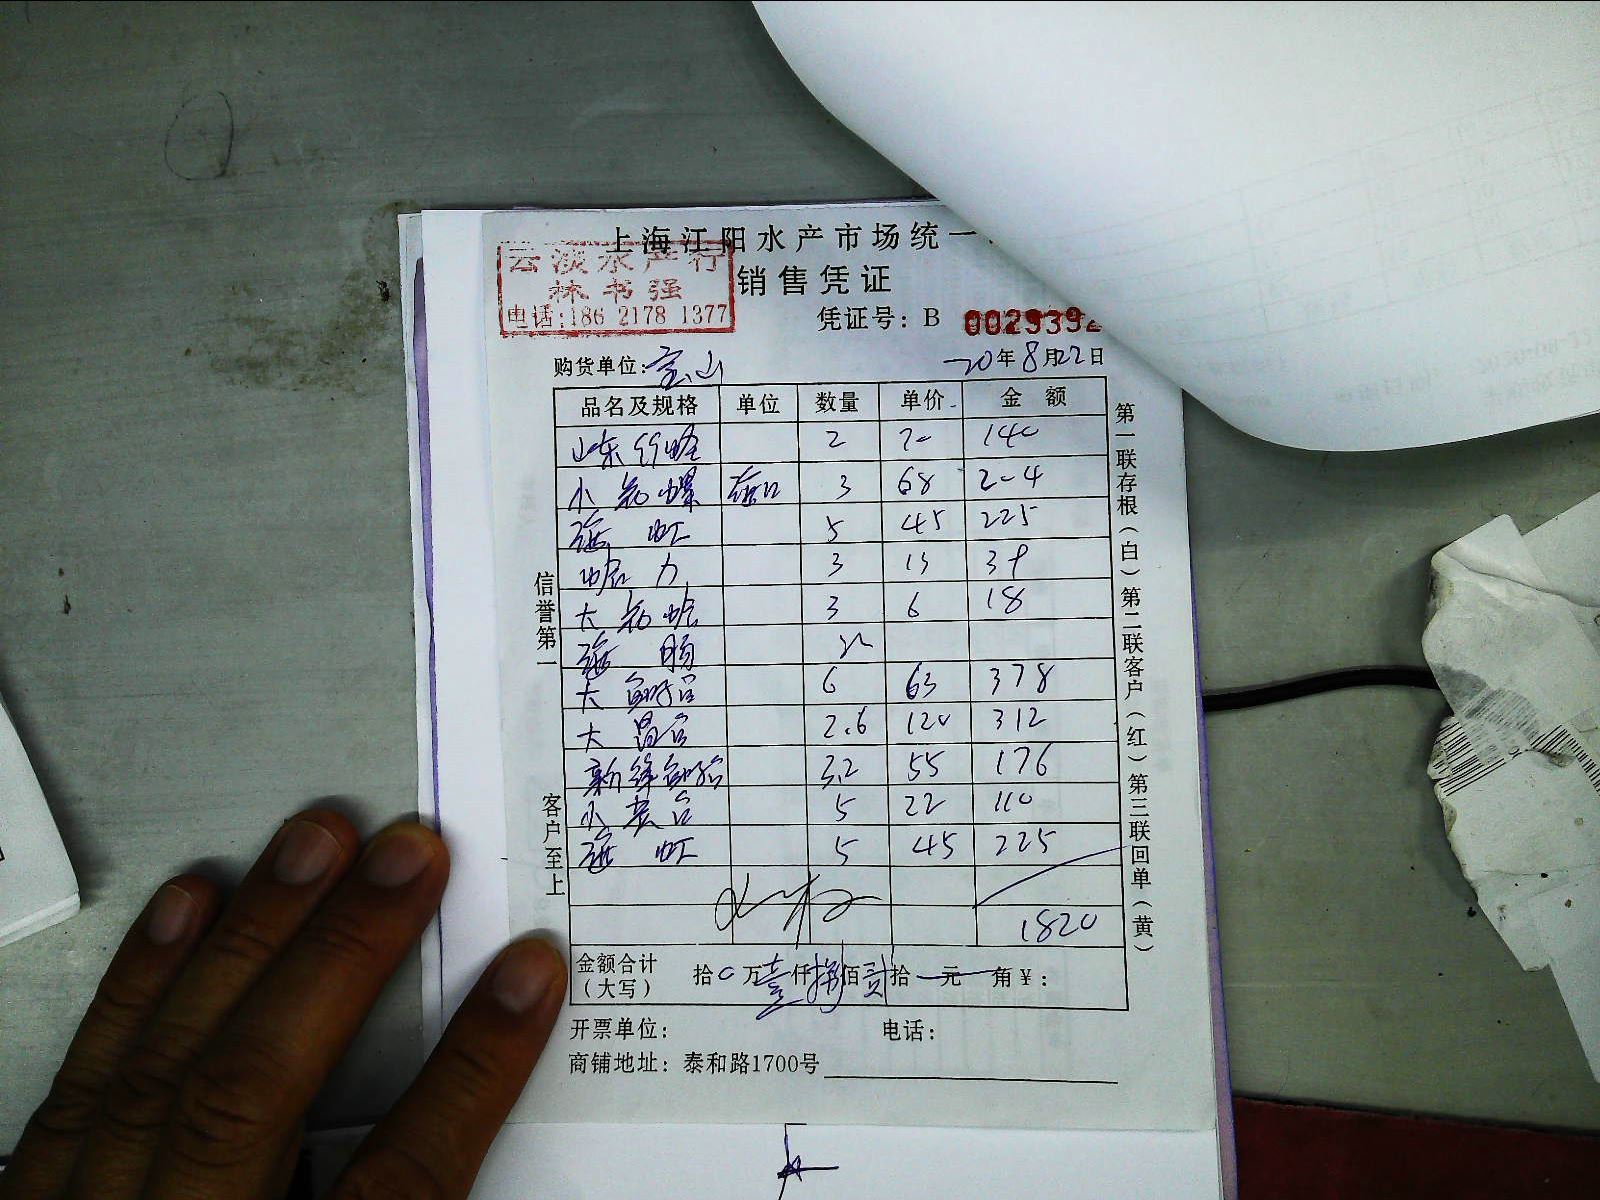 上海江阳水产市场统一
销售凭证
云淡水产行
林书强
电话:186 2178 1377
凭证号: B 0029392
购货单位: 宝山 20年8月22日
品名及规格 单位 数量 单价 金额
山东 2 70 140
小花螺 3 68 204
海虹 5 45 225
蛤力 3 13 39
大花蛤 3 6 18
海肠
大鲍 6 63 378
大 2.6 120 312
新 3.2 55 176
小 5 22 110
海虹 5 45 225
1820
金额合计(大写) 拾0万壹仟捌佰贰拾元角¥:
开票单位: 电话:
商铺地址: 泰和路1700号
信誉第一
客户至上
第一联存根(白)第二联客户(红)第三联回单(黄)